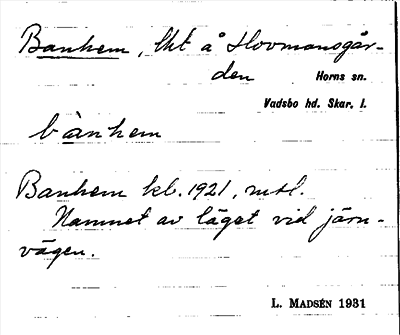 Banhem, lht å Hovmansgår-
den Horns sn.
Vadsbo hd. Skar. l.
bànhem
Banhem kl. 1921, mtl.
Namnet av läget vid järn-
vägen.
L. MADSÉN 1931